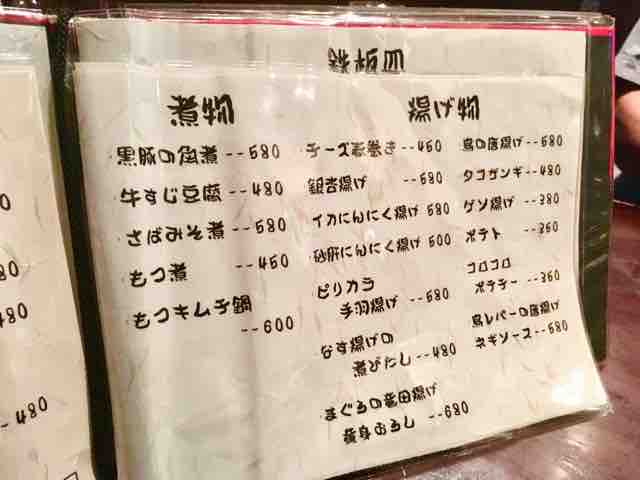 鉄板皿
煮物
黒豚の角煮 --580
牛すじ豆腐 --480
さばみそ煮 --580
もつ煮 --450
もつキムチ鍋
--600
揚げ物
チーズ春巻き --450
銀杏揚げ --580
イカにんにく揚げ 580
砂肝にんにく揚げ 500
ピリカラ
手羽揚げ --580
なす揚げの
煮びたし --480
まぐろの竜田揚げ
黄身おろし --680
鳥の唐揚げ --580
タコガンギ --480
ゲソ揚げ --380
ポテト --350
コロコロ
ポテチー --350
鳥レバーの唐揚げ
ネギソース --580